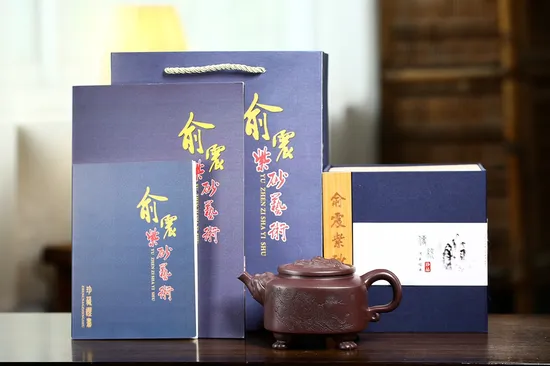 俞震
紫砂藝術
YU ZHEN ZI SHA YI SHU
俞震
紫砂藝術
YU ZHEN ZI SHA YI SHU
俞震
紫砂藝術
YU ZHEN ZI SHA YI SHU
俞震紫砂